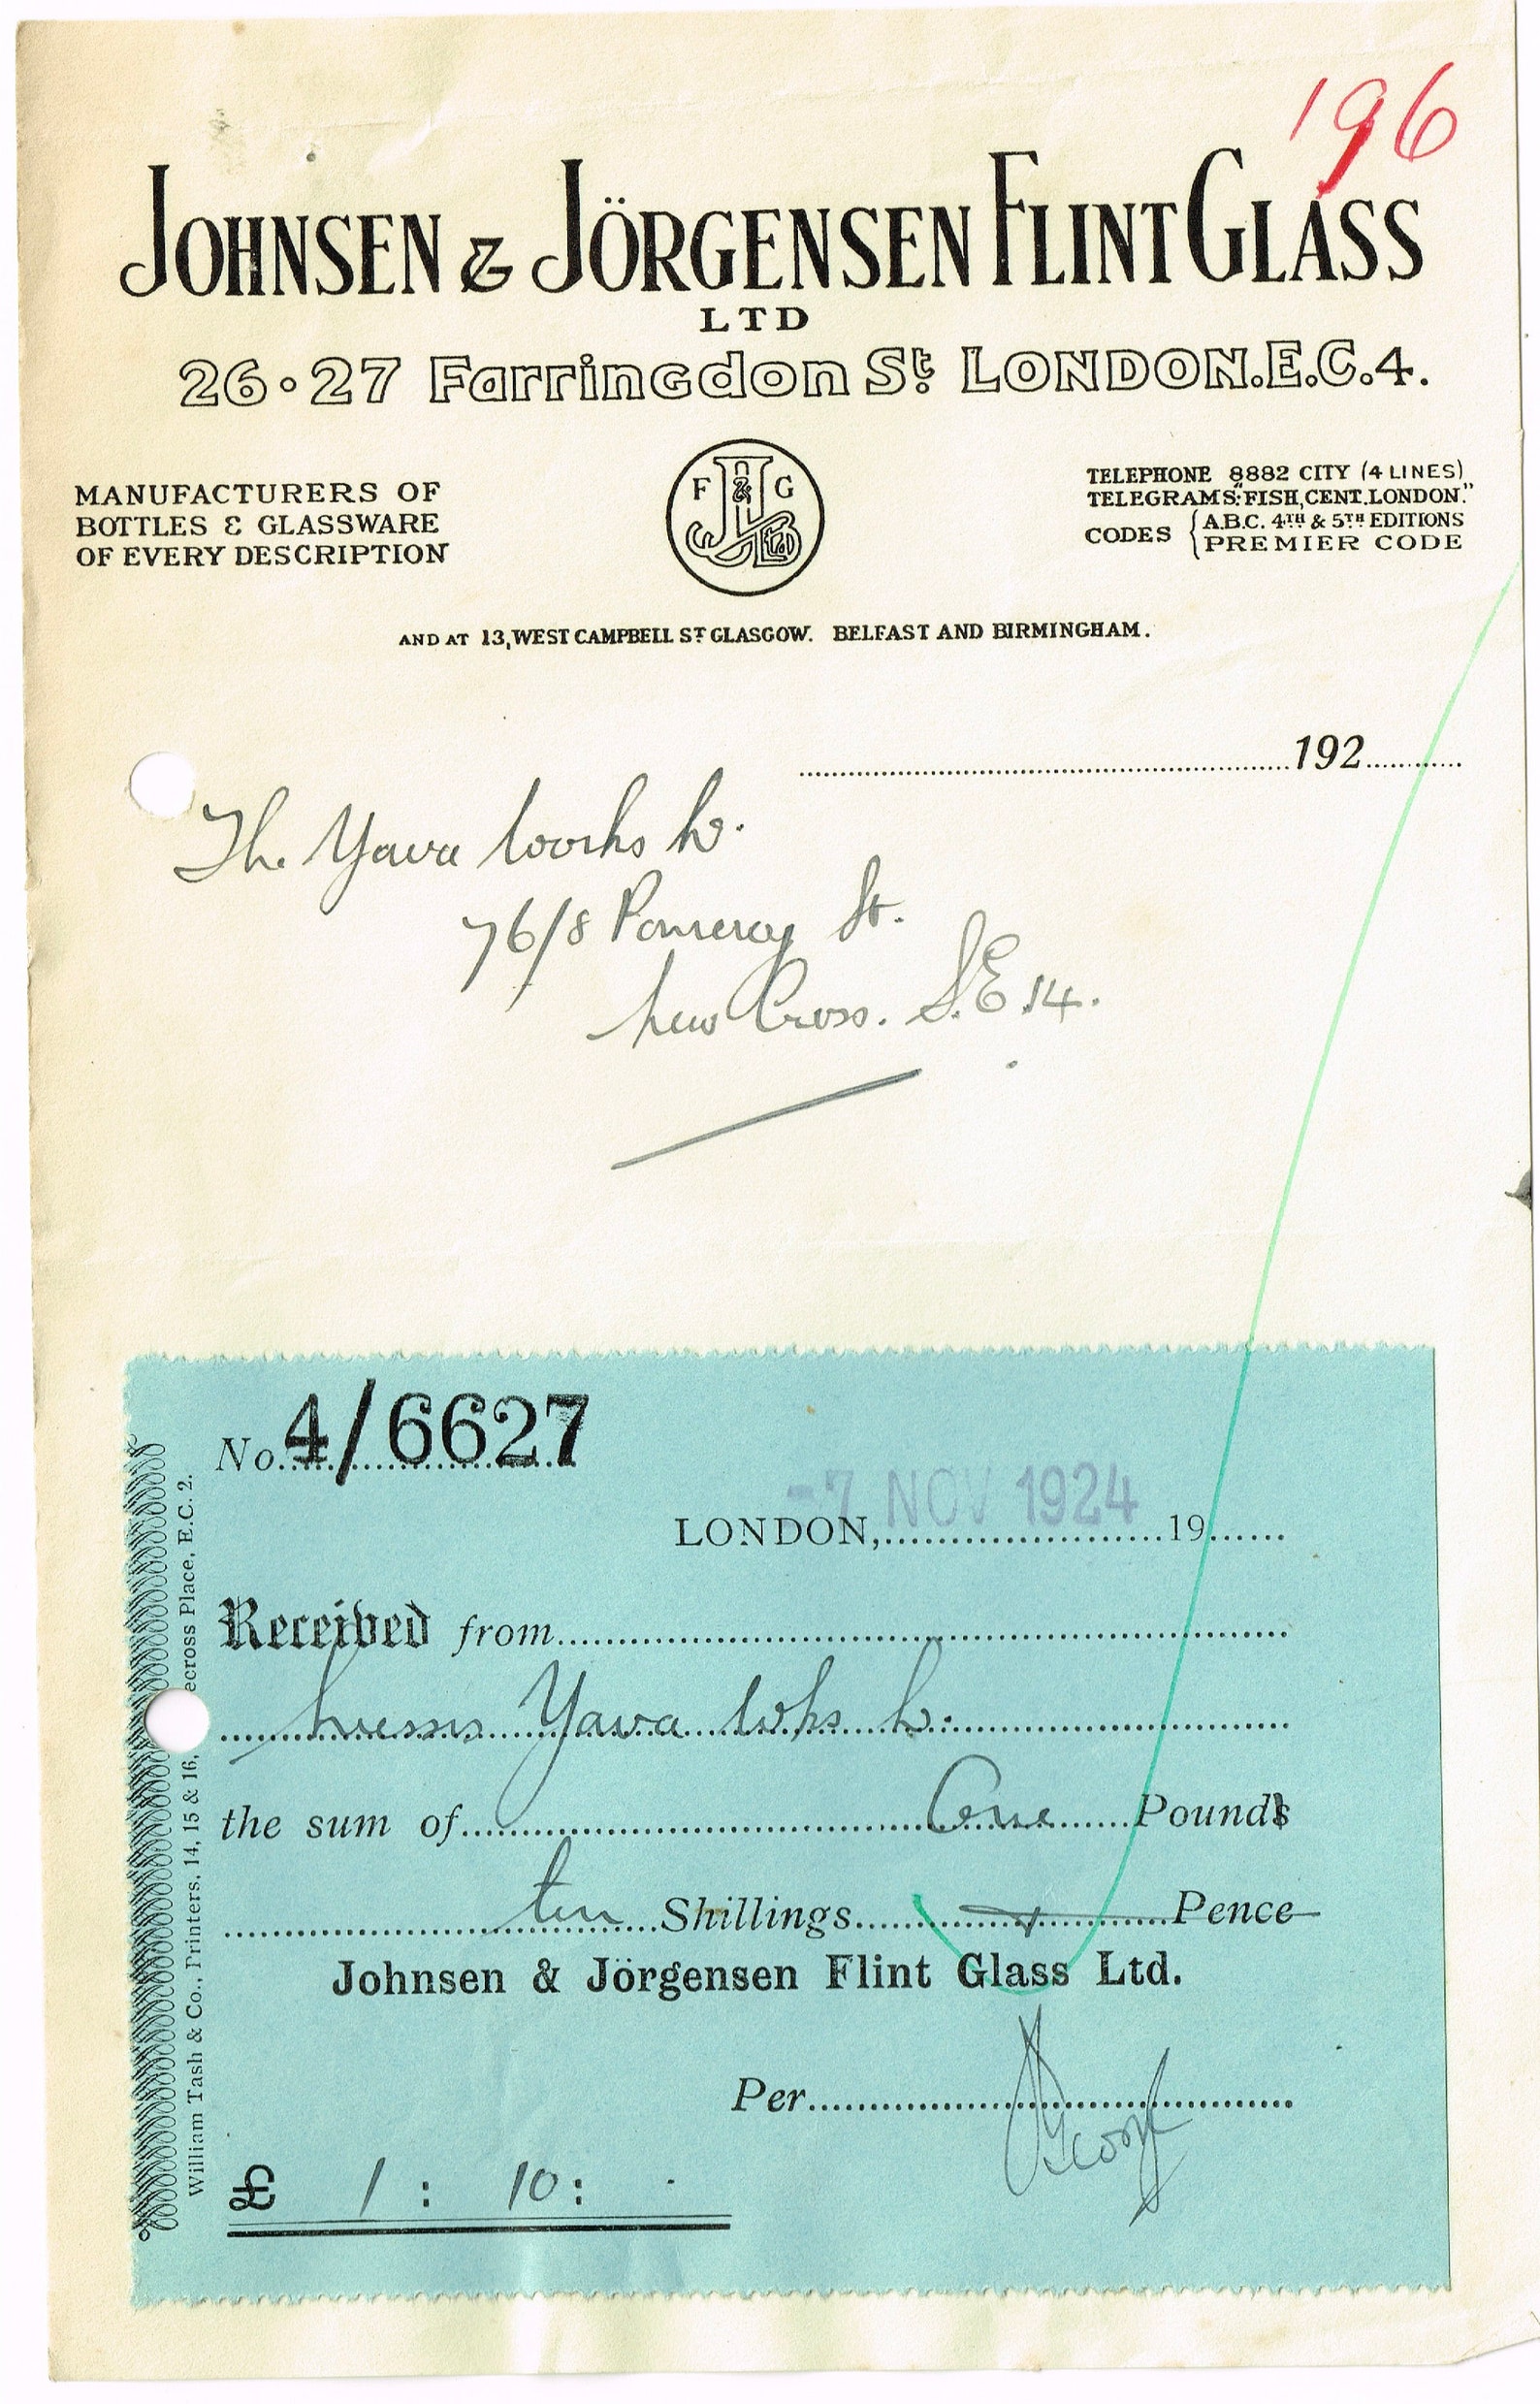 196
JOHNSEN & JÖRGENSEN FLINT GLASS
LTD
26·27 Farringdon St. LONDON.E.C.4.
MANUFACTURERS OF
BOTTLES & GLASSWARE
OF EVERY DESCRIPTION
F & G
J J
Ltd
TELEPHONE 8882 CITY (4 LINES)
TELEGRAMS: "FISH, CENT. LONDON."
CODES { A.B.C. 4TH & 5TH EDITIONS
PREMIER CODE
AND AT 13, WEST CAMPBELL ST GLASGOW. BELFAST AND BIRMINGHAM.
192
The Yava Works Co.
76/8 Pomeroy St.
New Cross. S.E.14.
No. 4/6627
-7 NOV 1924
LONDON, 19
Received from
Messrs Yava Wks Co.
the sum of One Pounds
ten Shillings Pence
Johnsen & Jörgensen Flint Glass Ltd.
Per
£ 1 : 10 :
William Tash & Co., Printers, 14, 15 & 16, ecross Place, E.C. 2.